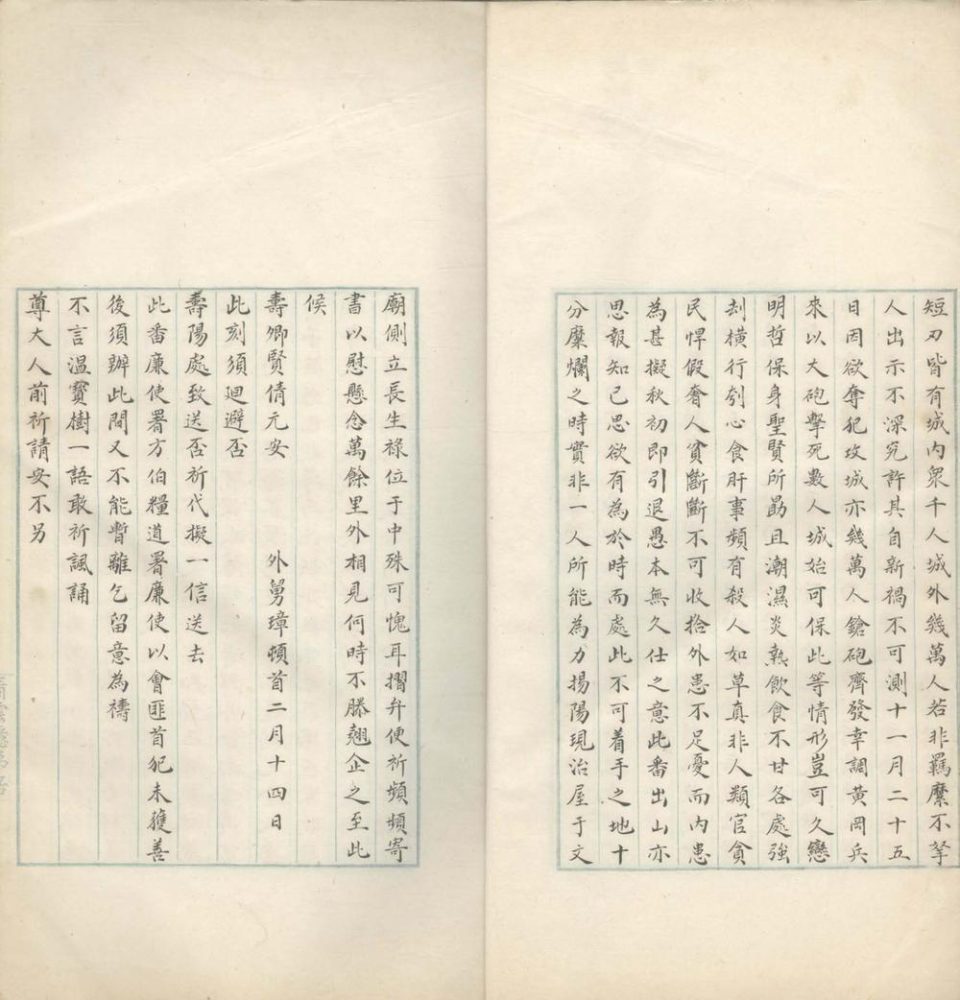 短刃皆有城內眾千人城外幾萬人若非羈縻不拏
人出示不深究許其自新禍不可測十一月二十五
日因欲奪犯攻城亦幾萬人鎗砲齊發幸調黃岡兵
來以大砲擊死數人城始可保此等情形豈可久戀
明哲保身聖賢所勗且潮濕炎熱飲食不甘各處強
刦橫行刳心食肝事頻有殺人如草真非人類官貪
民悍假奢人貧斷斷不可收拾外患不足憂而內患
為甚擬秋初即引退愚本無久仕之意此番出山亦
思報知己思欲有為於時而處此不可着手之地十
分糜爛之時實非一人所能為力揚陽現治屋于文
廟側立長生祿位于中殊可愧耳摺弁便祈頻頻寄
書以慰懸念萬餘里外相見何時不勝翹企之至此
候
壽卿賢倩元安　　外舅璋頓首二月十四日
此刻須迴避否
壽陽處致送否祈代擬一信送去
此番廉使署方伯糧道署廉使以會匪首犯未獲善
後須辦此間又不能暫離乞留意為禱
不言溫寶樹一語敢祈諷誦
尊大人前祈請安不另